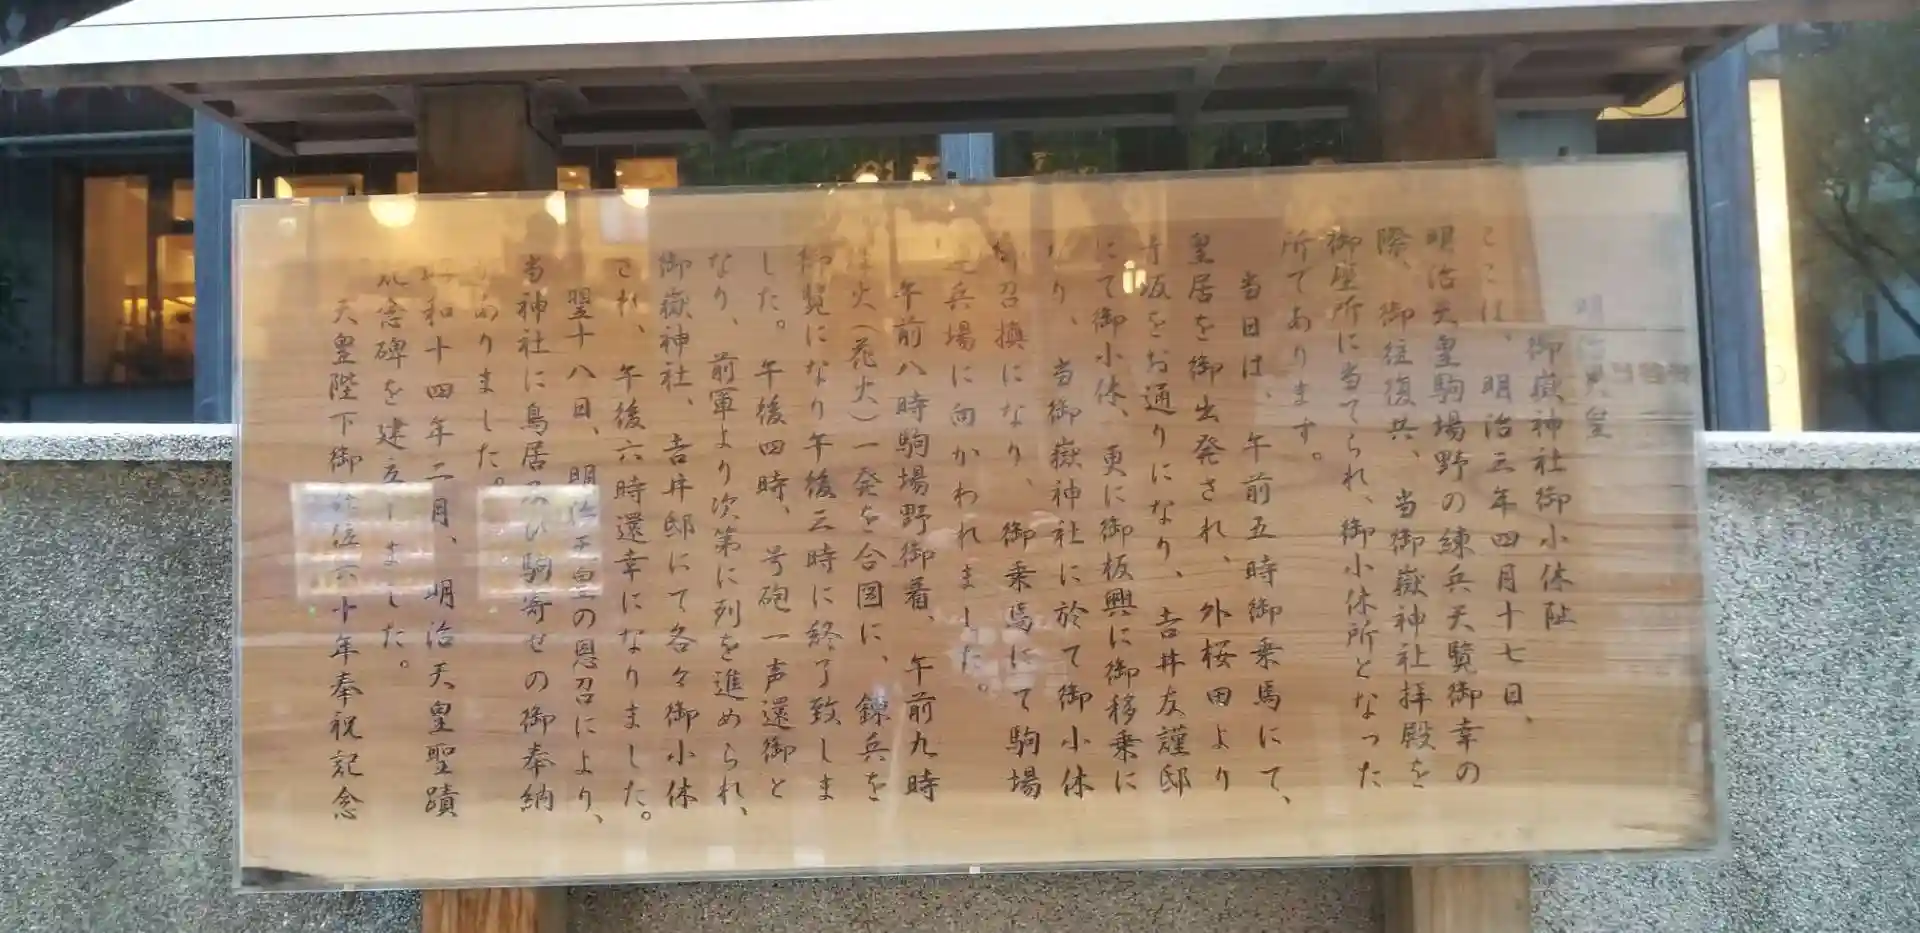 明治天皇
御嶽神社御小休阯
ここは、明治三年四月十七日、
明治天皇駒場野の練兵天覧御幸の
際、御往復共、当御嶽神社拝殿を
御座所に当てられ、御小休所となった
所であります。
当日は、午前五時御乗馬にて、
皇居を御出発され、外桜田より
坂をお通りになり、吉井友謹邸
にて御小休、更に御板輿に御移乗に
り、当御嶽神社に於て御小休
召換になり、御乗馬にて駒場
兵場に向かわれました。
午前八時駒場野御着、午前九時
火(花火)一発を合図に、錬兵を
御覧になり午後三時に終了致しま
した。午後四時、号砲一声還御と
なり、前軍より次第に列を進められ、
御嶽神社、吉井邸にて各々御小休
され、午後六時還幸になりました。
翌十八日、明治天皇の恩召により、
当神社に鳥居及び駒寄せの御奉納
ありました。
和十四年二月、明治天皇聖蹟
念碑を建立しました。
天皇陛下御在位六十年奉祝記念